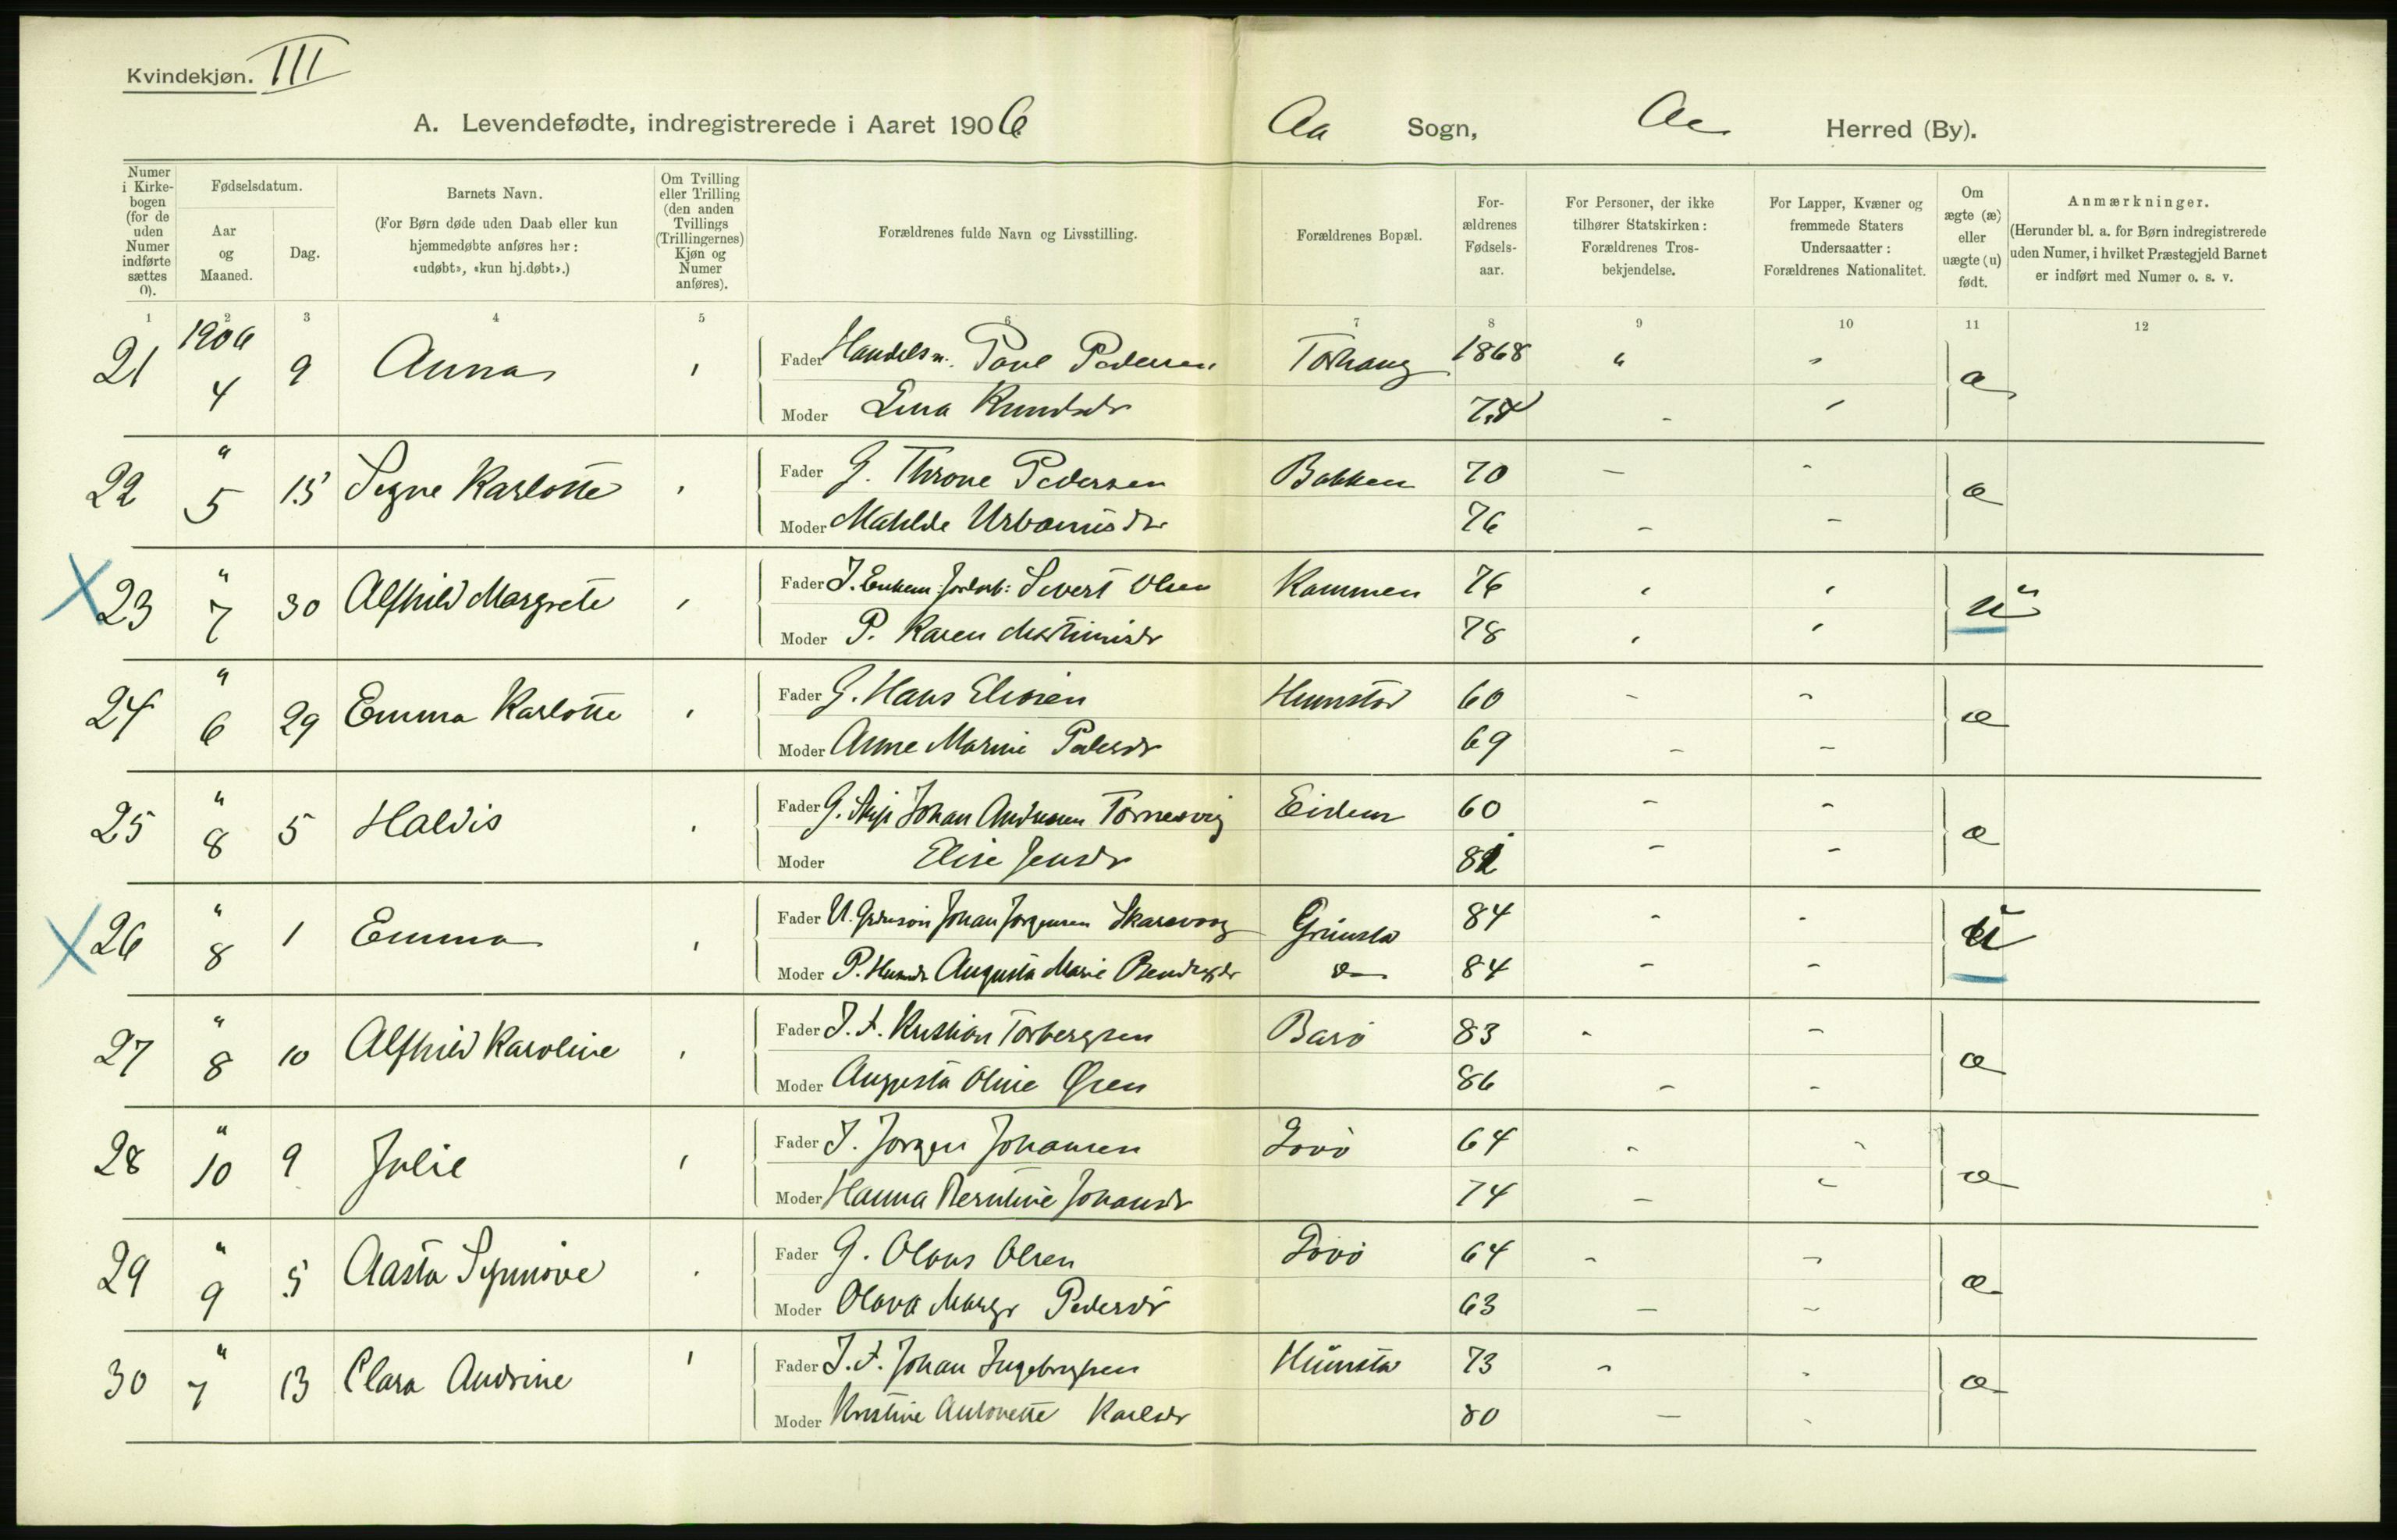 Kvindekjøn. III
A. Levendefødte, indregistrerede i Aaret 1906 Aa Sogn, Aa Herred (By).
Numer i Kirkebogen (for de uden Numer indførte sættes 0).
Fødselsdatum.
Aar og Maaned.
Dag.
Barnets Navn.
(For Børn døde uden Daab eller kun hjemmedøbte anføres her: «udøbt», «kun hj.døbt».)
Om Tvilling eller Trilling (den anden Tvillings (Trillingernes) Kjøn og Numer anføres).
Forældrenes fulde Navn og Livsstilling.
Forældrenes Bopæl.
Forældrenes Fødselsaar.
For Personer, der ikke tilhører Statskirken: Forældrenes Trosbekjendelse.
For Lapper, Kvæner og fremmede Staters Undersaatter: Forældrenes Nationalitet.
Om ægte (æ) eller uægte (u) født.
Anmærkninger.
(Herunder bl. a. for Børn indregistrerede uden Numer, i hvilket Præstegjeld Barnet er indført med Numer o. s. v.
1 2 3 4 5 6 7 8 9 10 11 12
21 1906 4 9 Anna Fader Handelsm. Paul Pedersen Torhaug 1868 " æ
Moder Lina Knudsdr
22 " 5 15 Signe Karlotte Fader G. Throne Pedersen Bakken 70 — æ
Moder Matilde Urbanusdr 76
X 23 " 7 30 Alfhild Margrete Fader Sivert Olsen Kammen 76 u
Moder P. Karen Martinusdr 78
24 " 6 29 Emma Karlotte Fader G. Hans Eliasen Humstad 60 æ
Moder Anne Marine Pedersdr 69
25 " 8 5 Haldis Fader G. Skip Johan Andersen Tornesvig Eidem 60 æ
Moder Elise Jensdr
X 26 " 8 1 Emma Fader U. Johan Jørgensen Skarsvaag Grimsta 84 u
Moder P. Augusta Marie 84
27 " 8 10 Alfhild Karoline Fader J. F. Kristian Torbergsen Barø 83 æ
Moder Augusta Oline 86
28 " 10 9 Julie Fader J. Jørgen Johansen Lovø 64 æ
Moder Hanna Berntine Johansdr 74
29 " 9 5 Aasta Synnøve Fader G. Olaus Olsen Lovø 64 æ
Moder Olava Margr Pedersdr 63
30 " 7 13 Clara Andrine Fader J. F. Johan Ingebrigtsen Humsta 73 æ
Moder Kristine Antonette Karlsdr 80